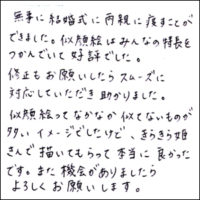 無事に結婚式に両親に渡すことが
できました。似顔絵はみんなの特長を
つかんでいて好評でした。
修正もお願いしたらスムーズに
対応していただき助かりました。
似顔絵ってなかなか似てないものが
多いイメージでしたけど、きらきら姫
さんで描いてもらって本当に良かった
です。また機会がありましたら
よろしくお願いします。